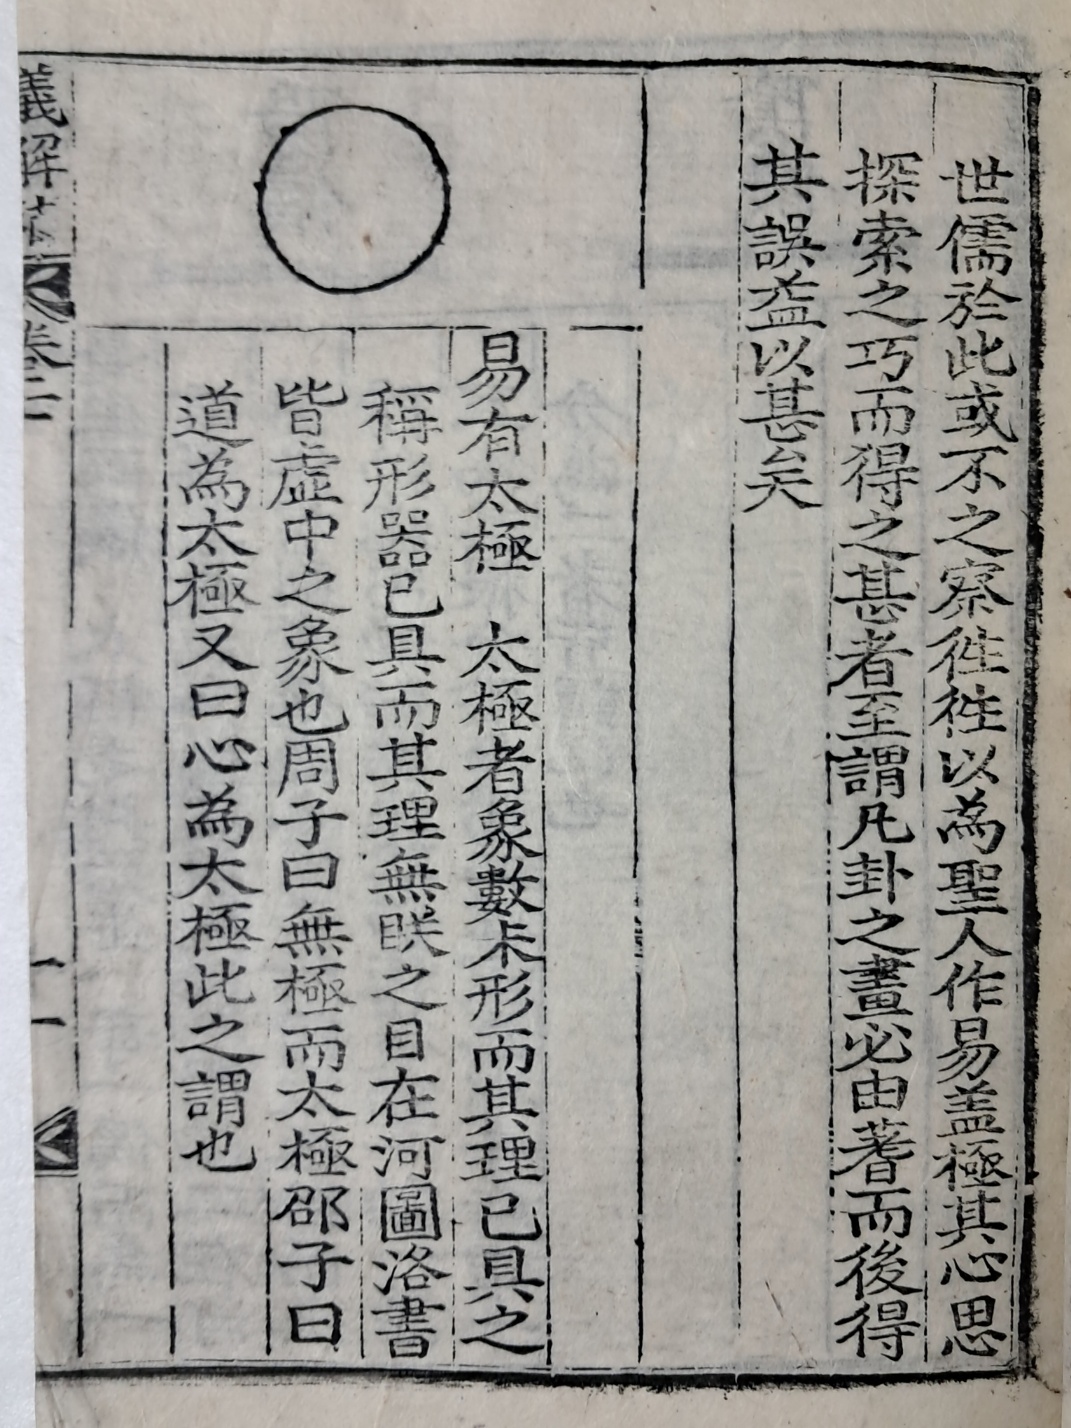 世儒於此或不之察徃徃以為聖人作易盖極其心思
探索之巧而得之甚者至謂凡卦之畫必由蓍而後得
其誤益以甚矣
易有太極　太極者象數未形而其理已具之
稱形器已具而其理無眹之目在河圖洛書
皆虛中之象也周子曰無極而太極邵子曰
道為太極又曰心為太極此之謂也
義解 卷二 一一